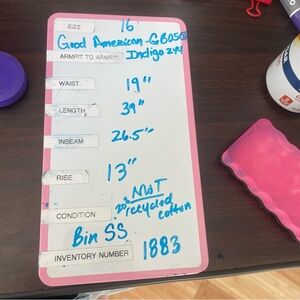 SIZE 16
Good American - GBDS07
ARMPIT TO ARMPIT Indigo 244
WAIST 19"
LENGTH 39"
INSEAM 26.5"
RISE 13"
NWT
CONDITION 20% recycled
cotton
Bin SS
INVENTORY NUMBER 1883